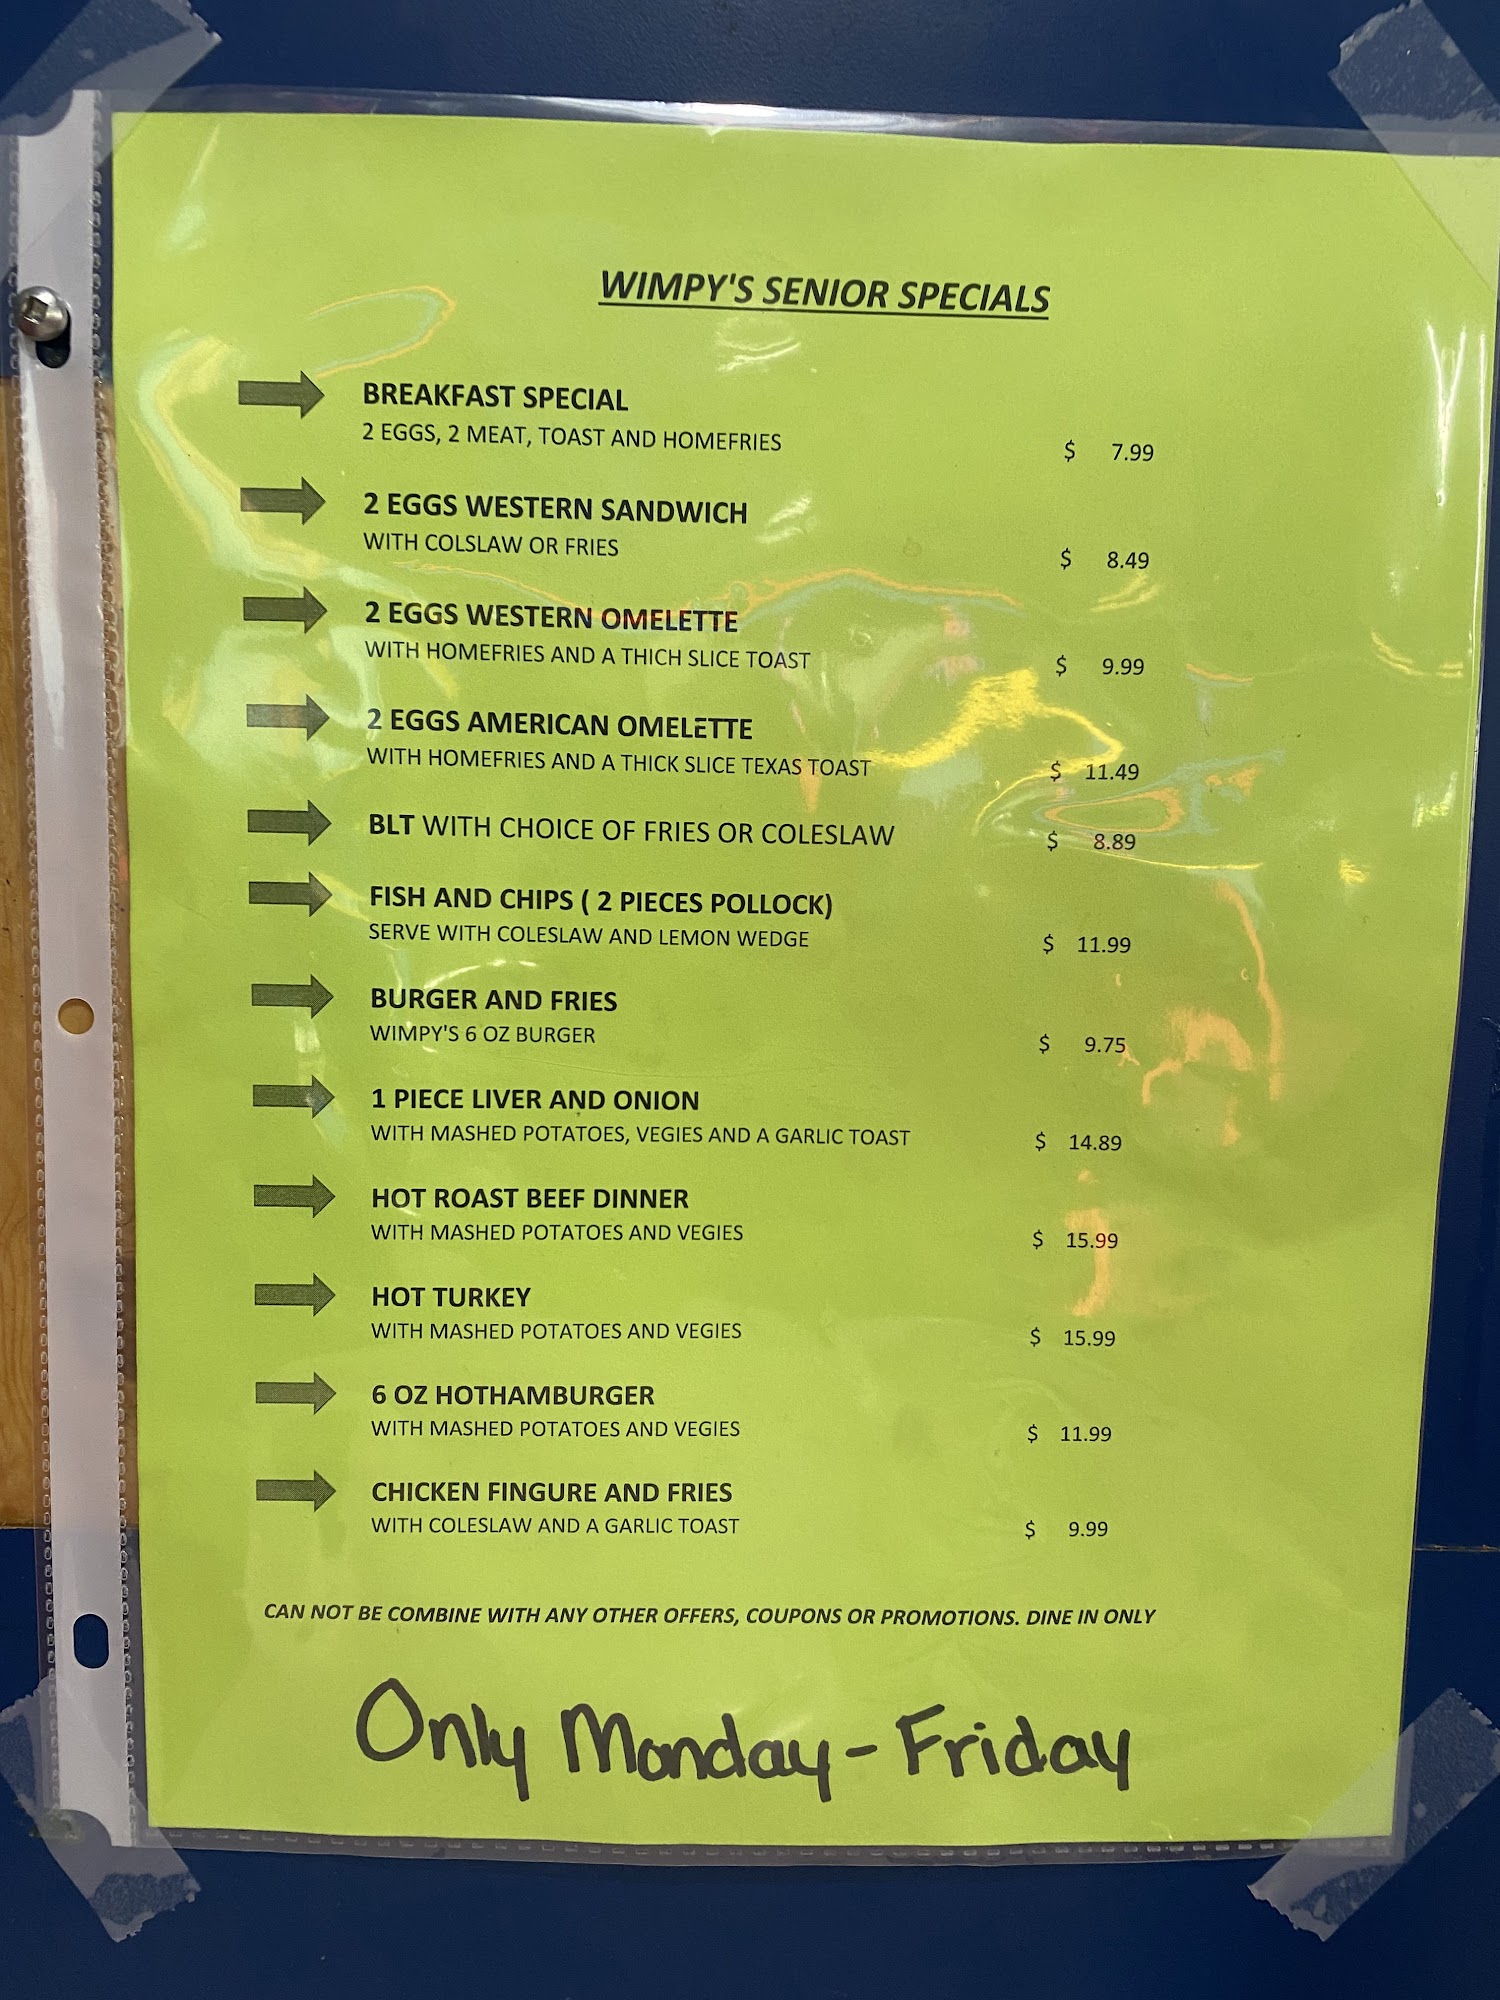 WIMPY'S SENIOR SPECIALS
BREAKFAST SPECIAL
2 EGGS, 2 MEAT, TOAST AND HOMEFRIES $ 7.99
2 EGGS WESTERN SANDWICH
WITH COLSLAW OR FRIES $ 8.49
2 EGGS WESTERN OMELETTE
WITH HOMEFRIES AND A THICH SLICE TOAST $ 9.99
2 EGGS AMERICAN OMELETTE
WITH HOMEFRIES AND A THICK SLICE TEXAS TOAST $ 11.49
BLT WITH CHOICE OF FRIES OR COLESLAW $ 8.89
FISH AND CHIPS ( 2 PIECES POLLOCK)
SERVE WITH COLESLAW AND LEMON WEDGE $ 11.99
BURGER AND FRIES
WIMPY'S 6 OZ BURGER $ 9.75
1 PIECE LIVER AND ONION
WITH MASHED POTATOES, VEGIES AND A GARLIC TOAST $ 14.89
HOT ROAST BEEF DINNER
WITH MASHED POTATOES AND VEGIES $ 15.99
HOT TURKEY
WITH MASHED POTATOES AND VEGIES $ 15.99
6 OZ HOTHAMBURGER
WITH MASHED POTATOES AND VEGIES $ 11.99
CHICKEN FINGURE AND FRIES
WITH COLESLAW AND A GARLIC TOAST $ 9.99
CAN NOT BE COMBINE WITH ANY OTHER OFFERS, COUPONS OR PROMOTIONS. DINE IN ONLY
Only Monday - Friday